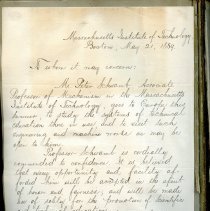 Massachusetts Institute of Technology,
Boston, May 21, 1889.
To whom it may concern:
Mr Peter Schwamb, Associate
Professor of Mechanism in the Massachusetts
Institute of Technology, goes to Europe this
summer, to study the systems of technical
education there in use, and to visit such
engineering and machine works as may be
open to him.
Professor Schwamb is cordially
commended to confidence. It is believed
that every opportunity and facility af-
forded him will be
of honor and fairness, and will be made
use of solely for the promotion of scientific